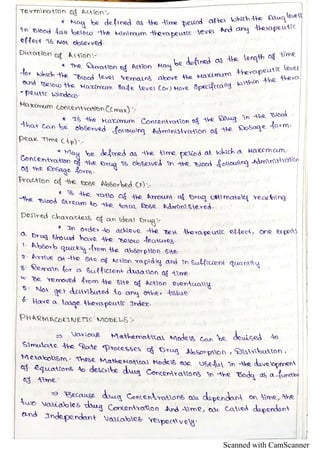 Termination of Action:-
* May be defined as the time period after which the Drug levels
in Blood fals below the Minimum therapeutic levels And any therapeutic
effect is Not observed.
Duration of Action:-
* The Duration of Action May be defined as the length of time
for which the Blood level remains above the Maximum therapeutic levels
and Below the Maximum Safe level (or) More specifically within the thera
-peutic window.
Maximum Concentration (Cmax):-
* Is the Maximum Concentration of the Drug in the Blood
that can be observed following Administration of the Dosage form.
Peak Time (tp):-
* May be defined as the time period at which a Maximum
Concentration of the Drug is observed in the Blood following Administration
of the Dosage form.
Fraction of the Dose Absorbed (F):-
* Is the ratio of the Amount of Drug Ultimately reaching
the Blood Stream to the total Dose Administered.
Desired characters of an ideal Drug:-
* In order to achieve the Best therapeutic effect, one expects
a Drug should have the Below features.
1. Absorb quickly from the absorption site
2. Arrive at the site of Action rapidly and in sufficient quantity.
3. Remain for a sufficient duration of time.
4. Be removed from the site of Action eventually
5. Not get distributed to any other tissue
6. Have a large therapeutic Index.
PHARMACOKINETIC MODELS:-
⇒ Various Mathematical Models can be devised to
Simulate the Rate Processes of Drug Absorption, Distribution,
Metabolism. These Mathematical Models are useful in the development
of equations to describe drug concentrations in the Body as a function
of time.
⇒ Because drug Concentrations are dependent on time, the
two variables drug Concentration And time, are called dependent
and Independent variables respectively.
Scanned with CamScanner